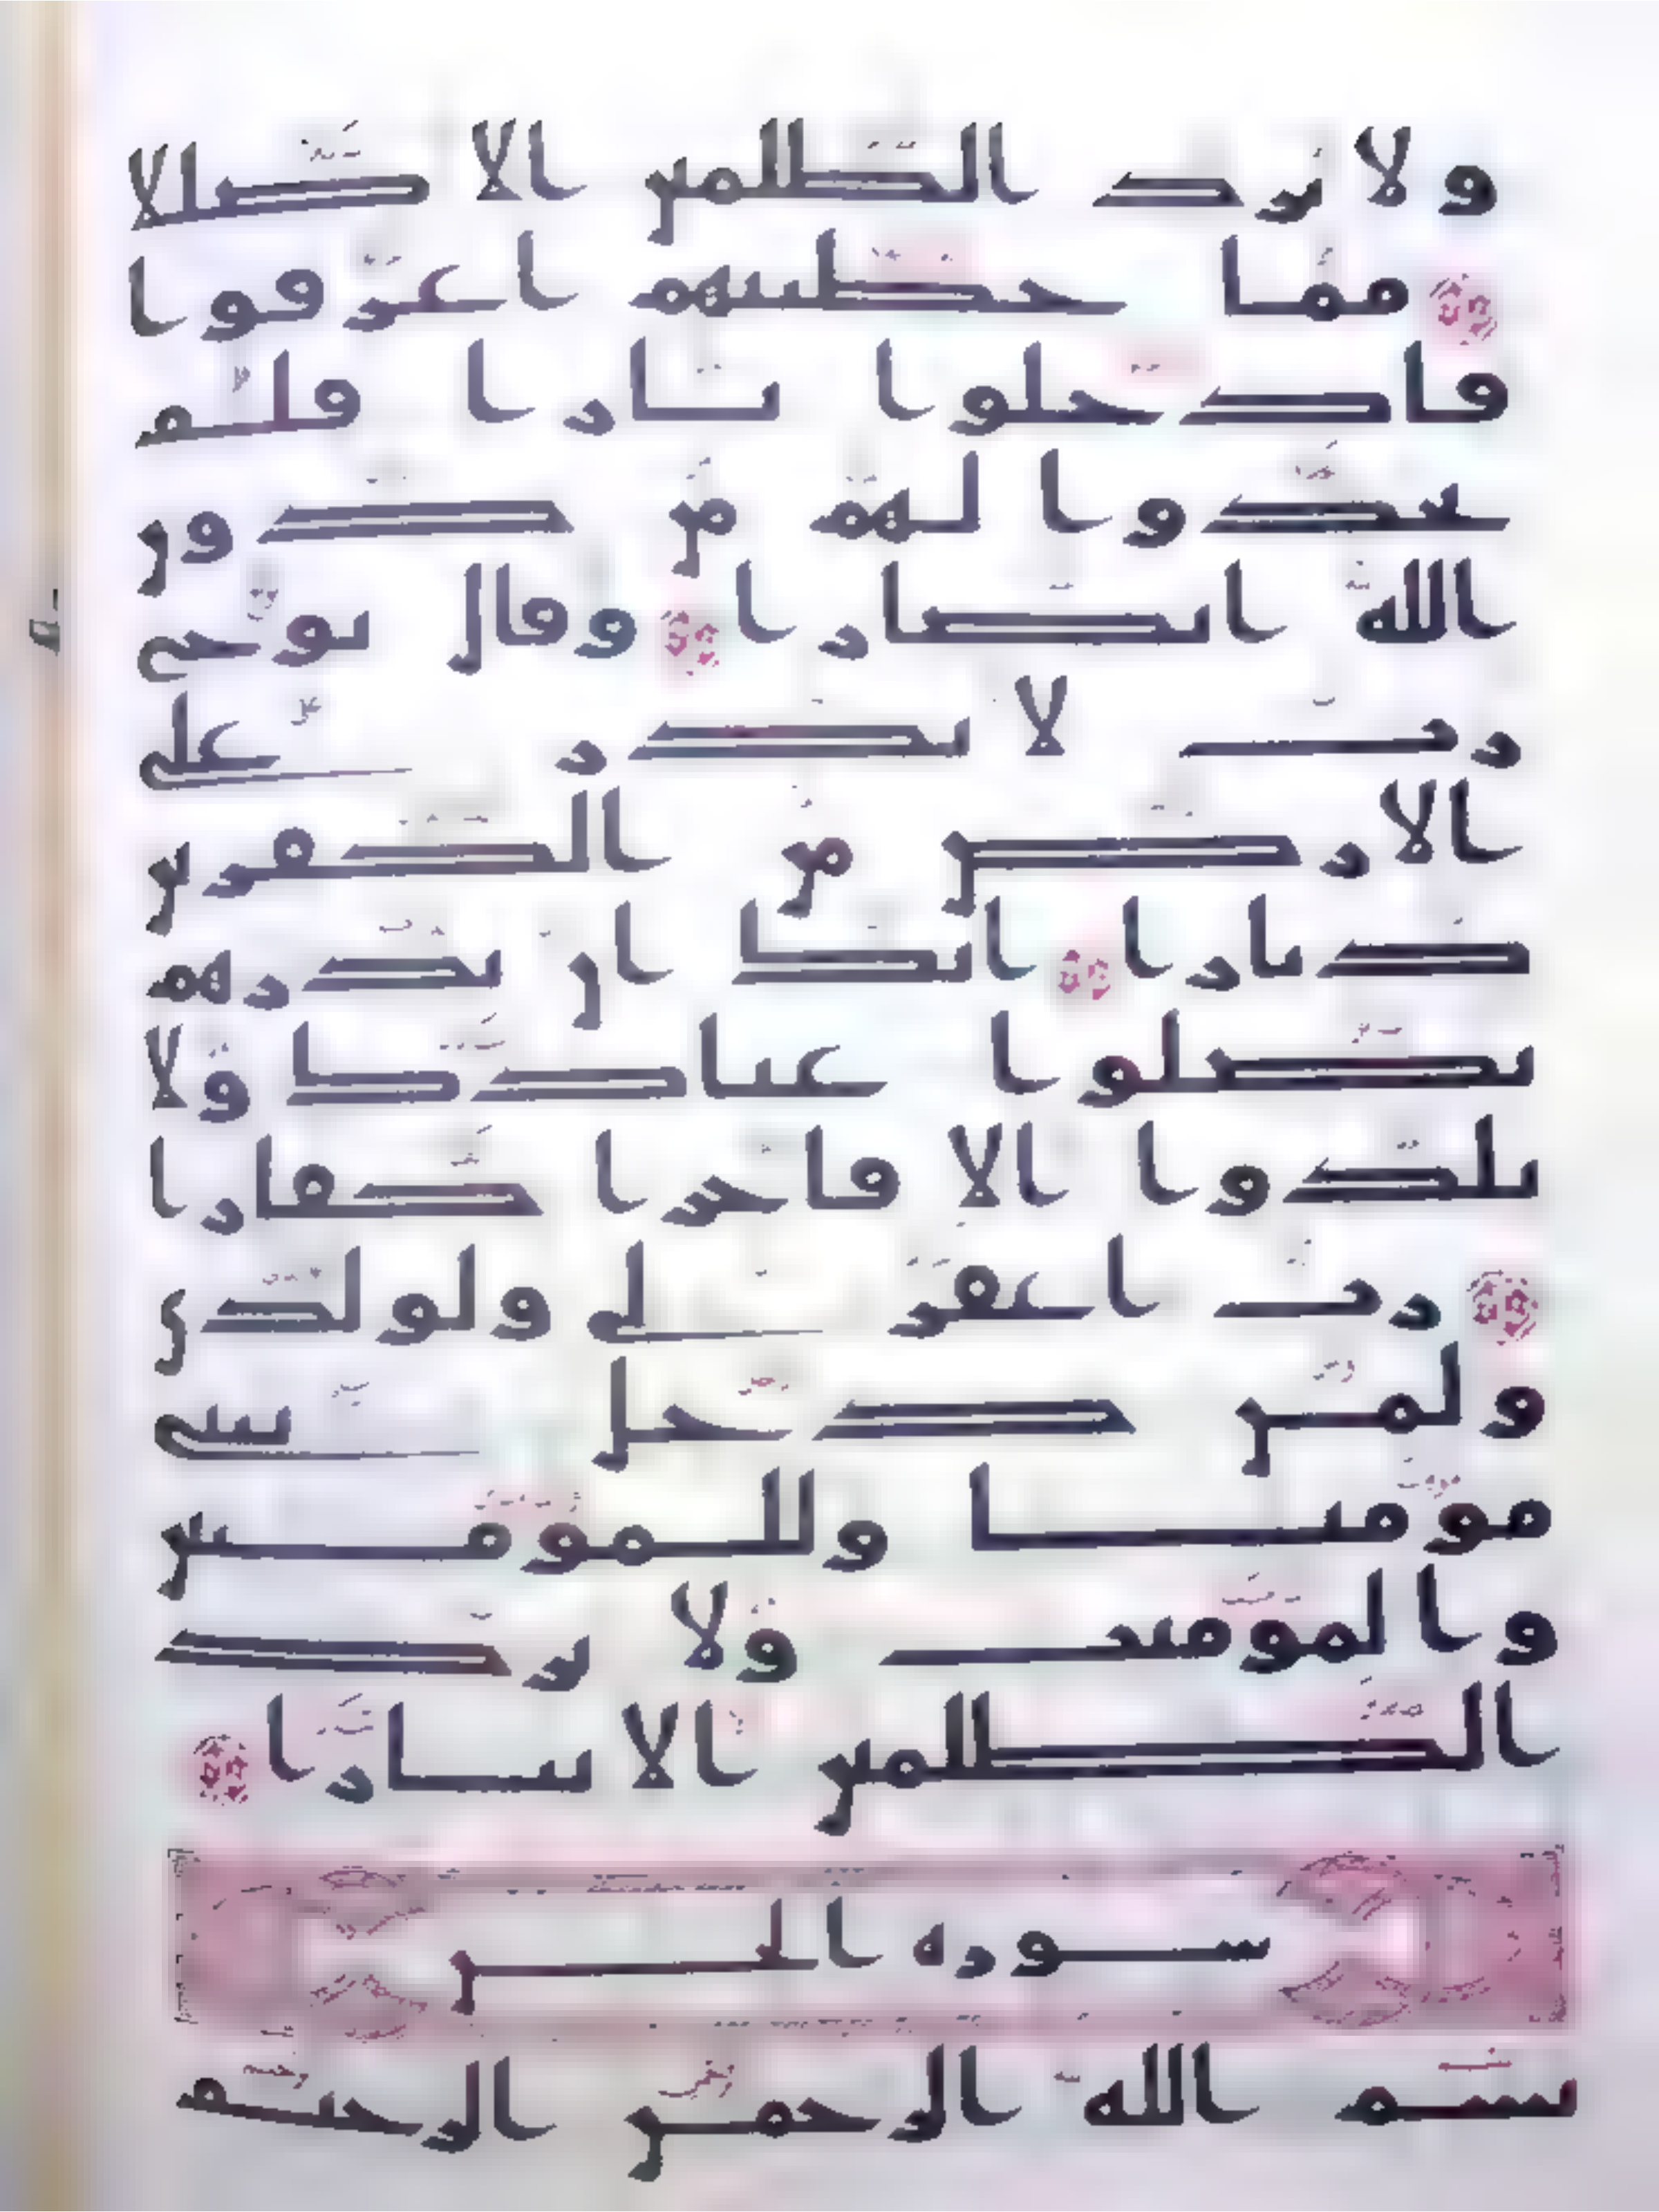 ولا تزد الظلمين الا ضلالا
مما خطيتهم اغرقوا
فادخلوا نارا فلم
يجدوا لهم من دون
الله انصارا وقال نوح
رب لا تذر على
الارض من الكفرين
ديارا انك ان تذرهم
يضلوا عبادك ولا
يلدوا الا فاجرا كفارا
رب اغفر لي ولولدي
ولمن دخل بيتي
مومنا وللمومنين
والمومنت ولا تزد
الظلمين الا تبارا
سورة الجن
بسم الله الرحمن الرحيم